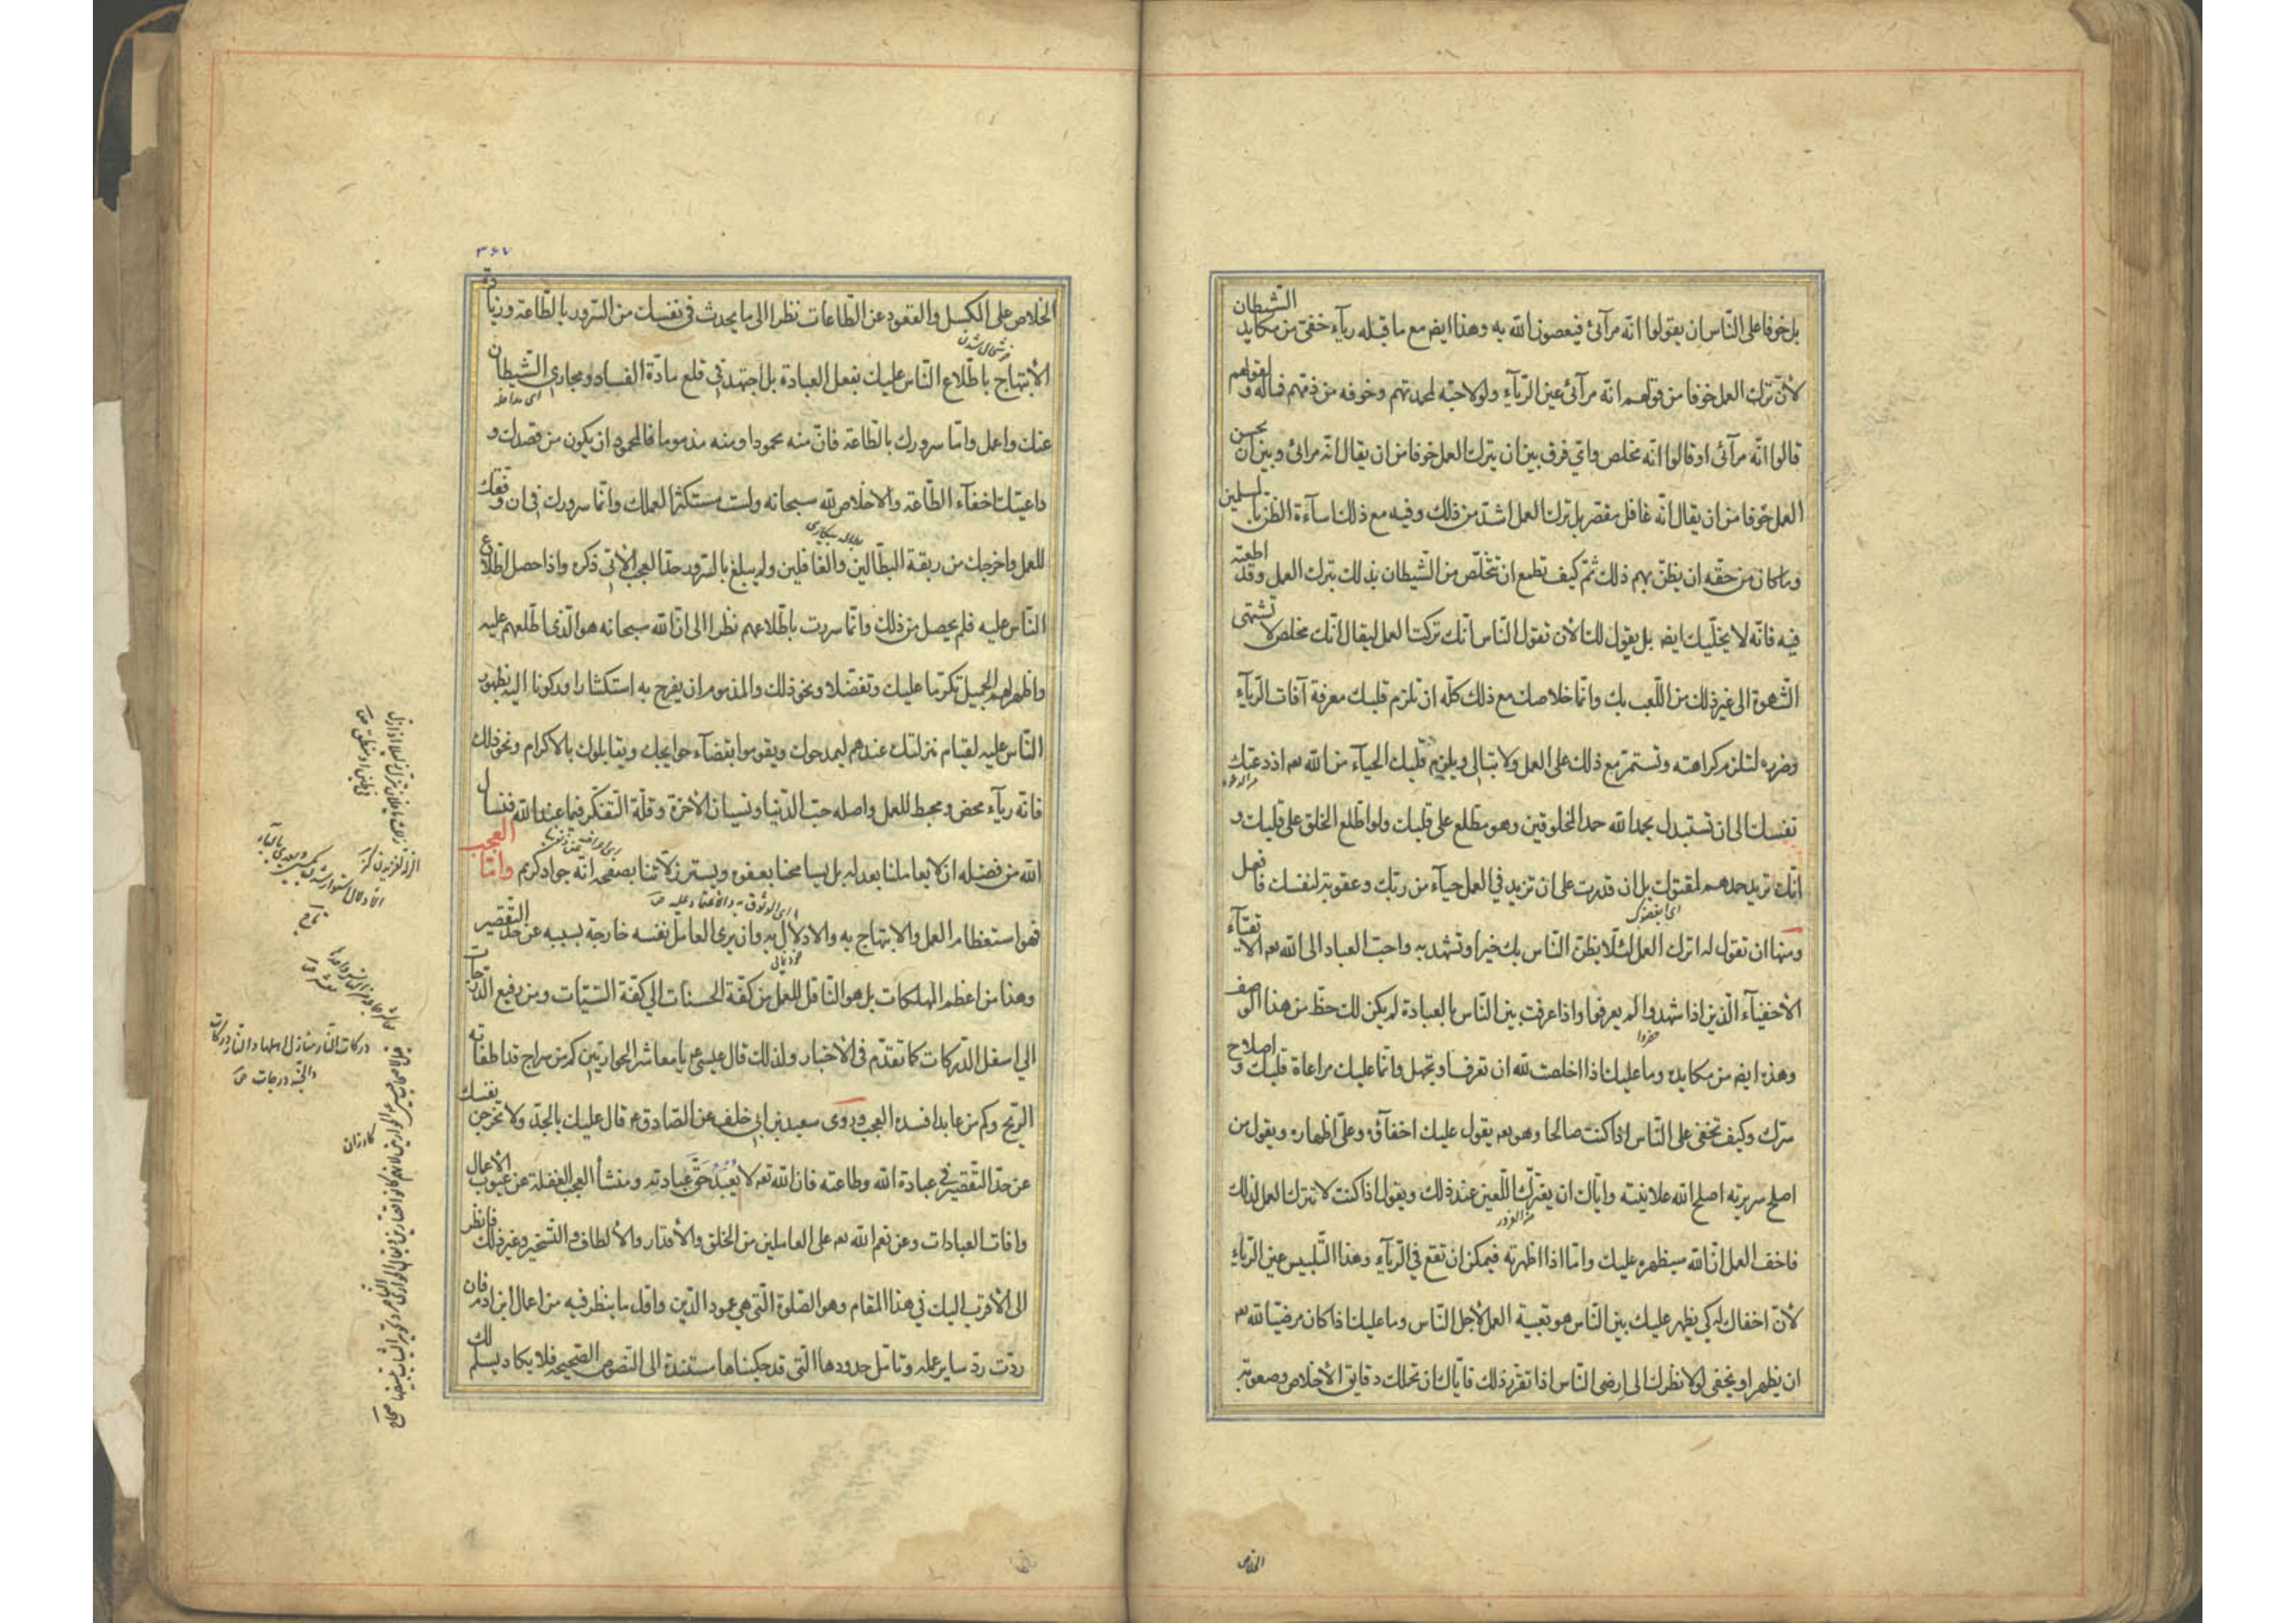 بل خوفا على النّاس ان يقولوا انّه مرآئى فيعصون الله به وهذا ايض مع ما قبله ريآء خفىّ من مكايد الشّيطان
لأنّ ترك العمل خوفا من قولهم انّه مرآئى عين الرّيآء ولولا حبّه لمحمدتهم وخوفه من ذمّهم فماله ولقولهم
قالوا انّه مرآئى او قالوا انّه مخلص واىّ فرق بين ان يترك العمل خوفا من ان يقال انّه مرائى وبين ان يحسن
العمل خوفا من ان يقال انّه غافل مقصر بل ترك العمل اشدّ من ذلك وفيه مع ذلك اسآءة الظنّ بالمسلمين
وما كان من حقّه ان يظنّ بهم ذلك ثمّ كيف تطمع ان تتخلّص من الشّيطان بذلك بترك العمل وقد اطعته
فيه فانّه لا يخلّيك ايض بل يقول لك الأن تقول النّاس انّك تركت العمل ليقال انّك مخلص لا تشتهى
الشّهوة الى غير ذلك من اللّعب بك وانّما خلاصك مع ذلك كلّه ان تلزم قلبك معرفة آفات الرّيآء
وضرره لتلزم كراهته وتستمرّ مع ذلك على العمل ولا تبالى ويلزم قلبك الحيآء من الله تعه اذ دعتك
نفسك الى ان تستبدل بحمد الله حمد المخلوقين وهو مطّلع على قلبك ولو اطّلع الخلق على قلبك و
انّك تريد حمدهم لمقتوك بل ان قدرت على ان تزيد فى العمل حيآء من ربّك وعقوبة لنفسك فافعل
اى ابغضوك
ومنها ان تقول له اترك العمل لئلّا يظنّ النّاس بك خيرا وتشهد به واحبّ العباد الى الله تعه الاتقيآء
الأخفيآء الّذين اذا شهدوا لم يعرفوا واذا عرفت بين النّاس بالعبادة لم يكن لك حظّ من هذا الوصف
وهذه ايض من مكايده وما عليك اذا اخلصت لله ان تعرف او تجهل وانّما عليك مراعاة قلبك واصلاح
سرّك وكيف تخفى على النّاس اذا كنت صالحا وهو تعه يقول عليك اخفآؤه وعلىّ اظهاره ويقول من
اصلح سريرته اصلح الله علانيته وايّاك ان يغترّك اللّعين عند ذلك ويقول اذا كنت لا تترك العمل لذلك
من الغرور
فاخف العمل انّ الله سيظهره عليك وامّا اذا اظهرته فيمكن ان تقع فى الرّيآء وهذا التّلبيس عين الرّيآء
لأنّ اخفاك له كى يظهر عليك بين النّاس هو تعبية العمل لأجل النّاس وما عليك اذا كان مرضيّا لله تعه
ان يظهر او يخفى لولا نظرك الى رضى النّاس اذا تقرّر ذلك فايّاك ان تحملك دقايق الأخلاص وصعوبة
الخلاص
٣٦٧
الخلاص على الكسل والقعود عن الطّاعات نظرا الى ما يحدث فى نفسك من السّرور بالطّاعة وزيادة
خوشحال شدن
الأبتهاج باطّلاع النّاس عليك بفعل العبادة بل اجتهد فى قلع مادّة الفساد ومجارى الشّيطان
اى مداخله
عنك واعمل وامّا سرورك بالطّاعة فانّ منه محمودا ومنه مذموما فالمحمود ان يكون من قصدك و
داعيتك اخفآء الطّاعة والاخلاص لله سبحانه ولست مستكثرا لعملك وانّما سرورك فى ان وفّقك
للعمل واخرجك من ربقة البطّالين والغافلين ولم يبلغ بالسّرور حدّ العجب الأتى ذكره واذا حصل اطّلاع
النّاس عليه فلم يحصل من ذلك وانّما سررت باطّلاعهم نظرا الى انّ الله سبحانه هو الّذى اطّلعهم عليه
واظهر لهم الجميل تكرّما عليك وتفضّلا ونحو ذلك والمذموم ان يفرح به استكثارا وركونا اليه بظهور
النّاس عليه لقيام منزلتك عندهم ليمدحوك ويقوموا بقضآء حوايجك ويقابلوك بالاكرام ونحو ذلك
فانّه ريآء محض ومحبط للعمل واصله حبّ الدّنيا ونسيان الأخرة وقلّة التّفكّر فيما عند الله فنسأل
الله من فضله ان لا يعاملنا بعدله بل يسامحنا بعفوه ويستر زلّاتنا بصفحه انّه جواد كريم وامّا العجب
اى الوثوق به والاعتماد عليه
فهو استعظام العمل والابتهاج به والادلال به وان يرى العامل نفسه خارجة بسببه عن حدّ التّقصير
وهذا من اعظم المهلكات بل هو النّاقل للعمل من كفّة الحسنات الى كفّة السّيّئات ومن رفيع الدّرجات
الى اسفل الدّركات كما تقدّم فى الأخبار ولذلك قال عيسى ع يا معاشر الحواريّين كم من سراج قد اطفأته
الرّيح وكم من عابد افسده العجب وروى سعيد بن ابى خلف عن الصّادق ع قال عليك بالجدّ ولا تخرجن نفسك
عن حدّ التّقصير فى عبادة الله وطاعته فانّ الله تعه لا يُعبَدُ حقّ عبادته ومنشأ العجب الغفلة عن عيوب الأعمال
وافات العبادات وعن نعم الله تعه على العاملين من الخلق والأقدار والألطاف والتّسخير وغير ذلك فانظر
الى الأقرب اليك فى هذا المقام وهو الصّلوة الّتى هى عمود الدّين واوّل ما ينظر فيه من اعمال ابن ادم فان
ردّت ردّ ساير عمله وتامّل حدودها الّتى قد حكيناها مستندة الى النّصوص الصّحيحه فلا يكاد يسلم لك
دركات النّار منازل اهلها والنّار دركات
والجنّة درجات ص
كازران